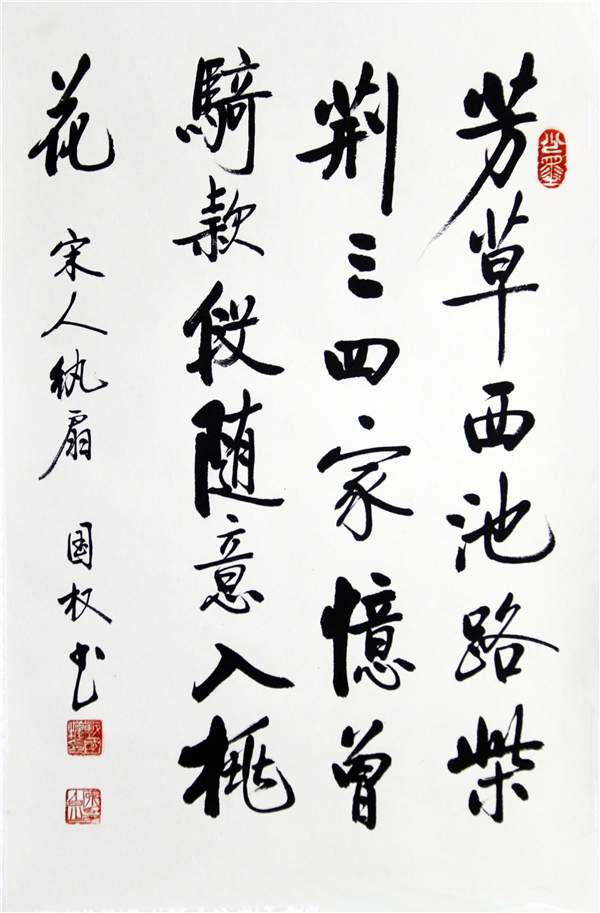 芳草西池路柴
荆三四家憶曾
騎款段随意入桃
花 宋人纨扇 国权书